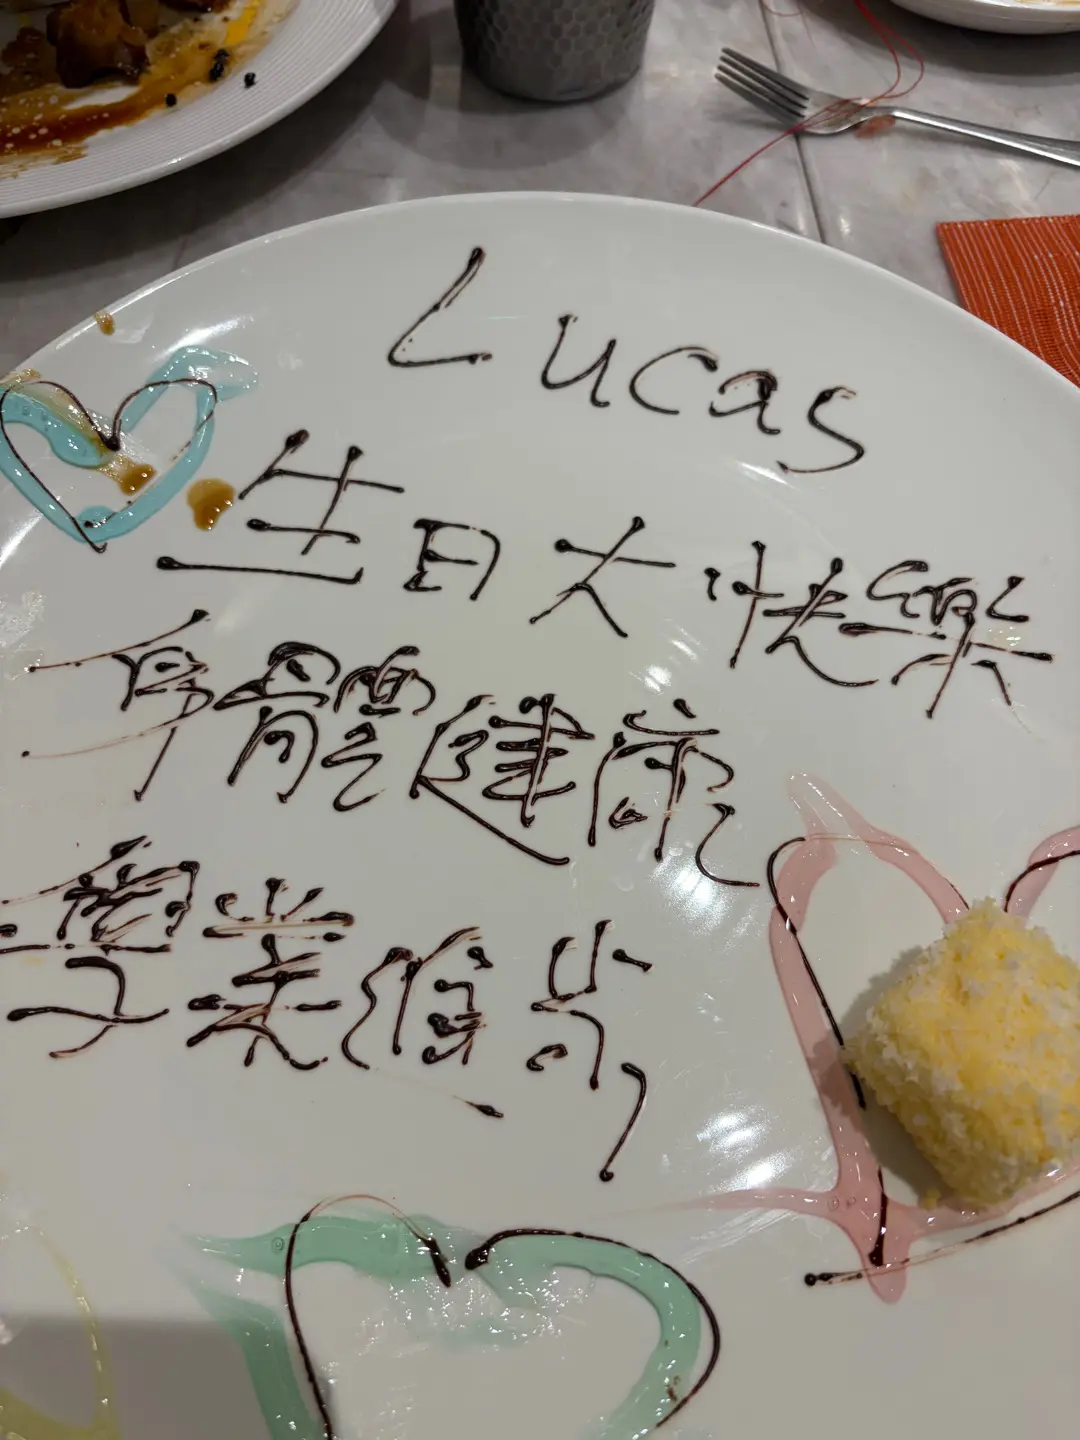 Lucas
生日大快樂
身體健康
學業進步